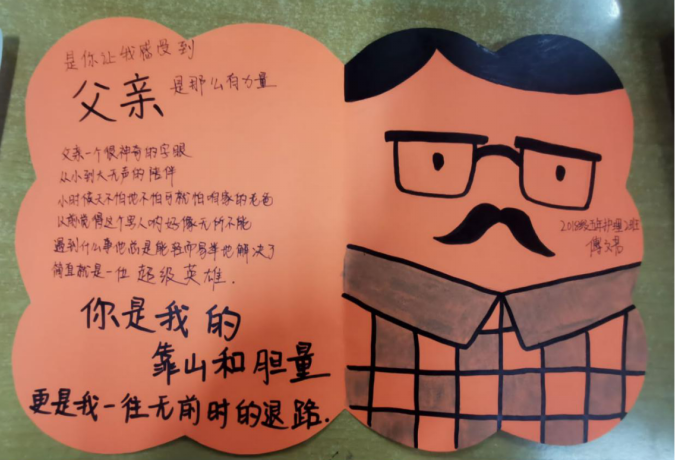 是你让我感受到
父亲 是那么有力量
父亲一个很神奇的字眼
从小到大无声的陪伴
小时候天不怕地不怕可就怕咱家的老爸
以前觉得这个男人哟好像无所不能
遇到什么事他总是能轻而易举地解决了
简直就是一位 超级英雄.
你是我的
靠山和胆量
更是我一往无前时的退路.
2018级3年护理2班
傅文